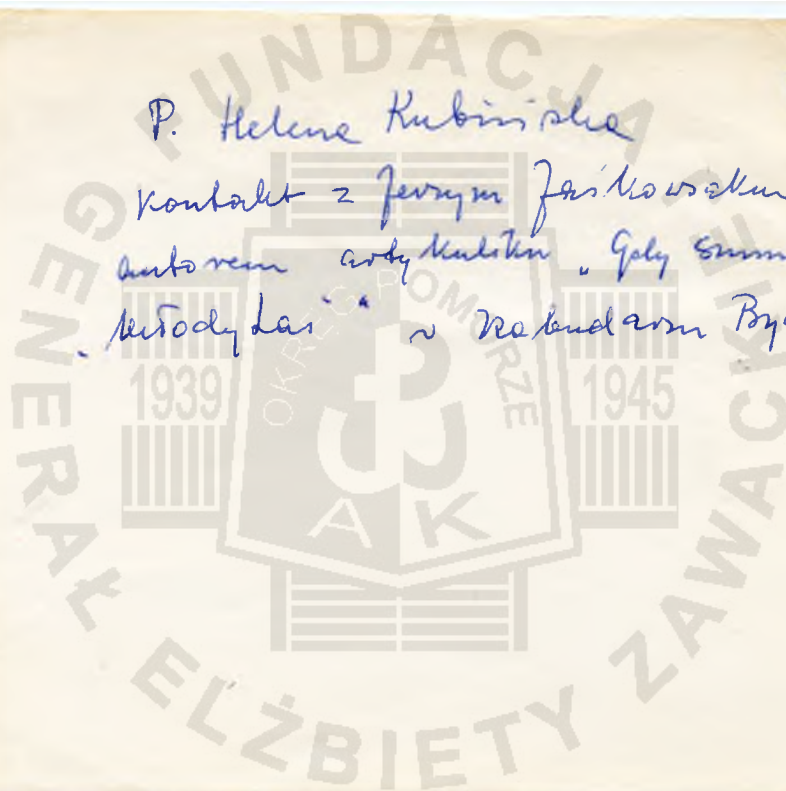 P. Helena Kubińska
kontakt z Jerzym Jaśkowiakem
autorem artykuliku „Gdy szum
„Młody Las" w Kalendarzu By
FUNDACJA
GENERAŁ ELŻBIETY ZAWACKIEJ
OKRĘG POMORZE
1939
1945
AK